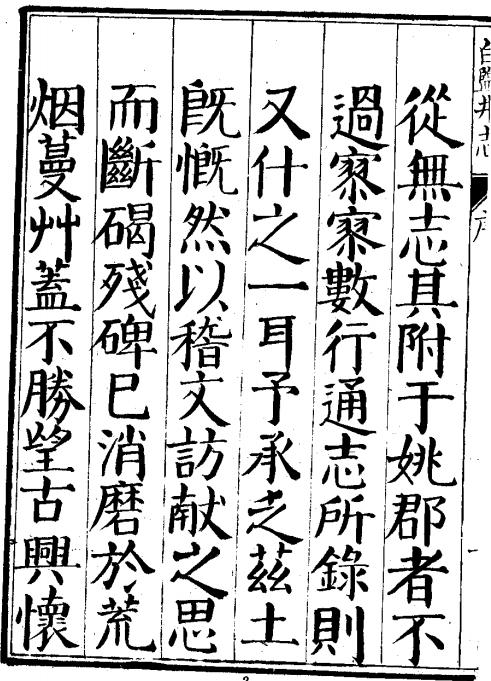 從無志其附于姚郡者不
過寥寥數行通志所錄則
又什之一耳予承乏茲土
旣慨然以稽文訪献之思
而斷碣殘碑已消磨於荒
烟蔓艸蓋不勝望古興懷